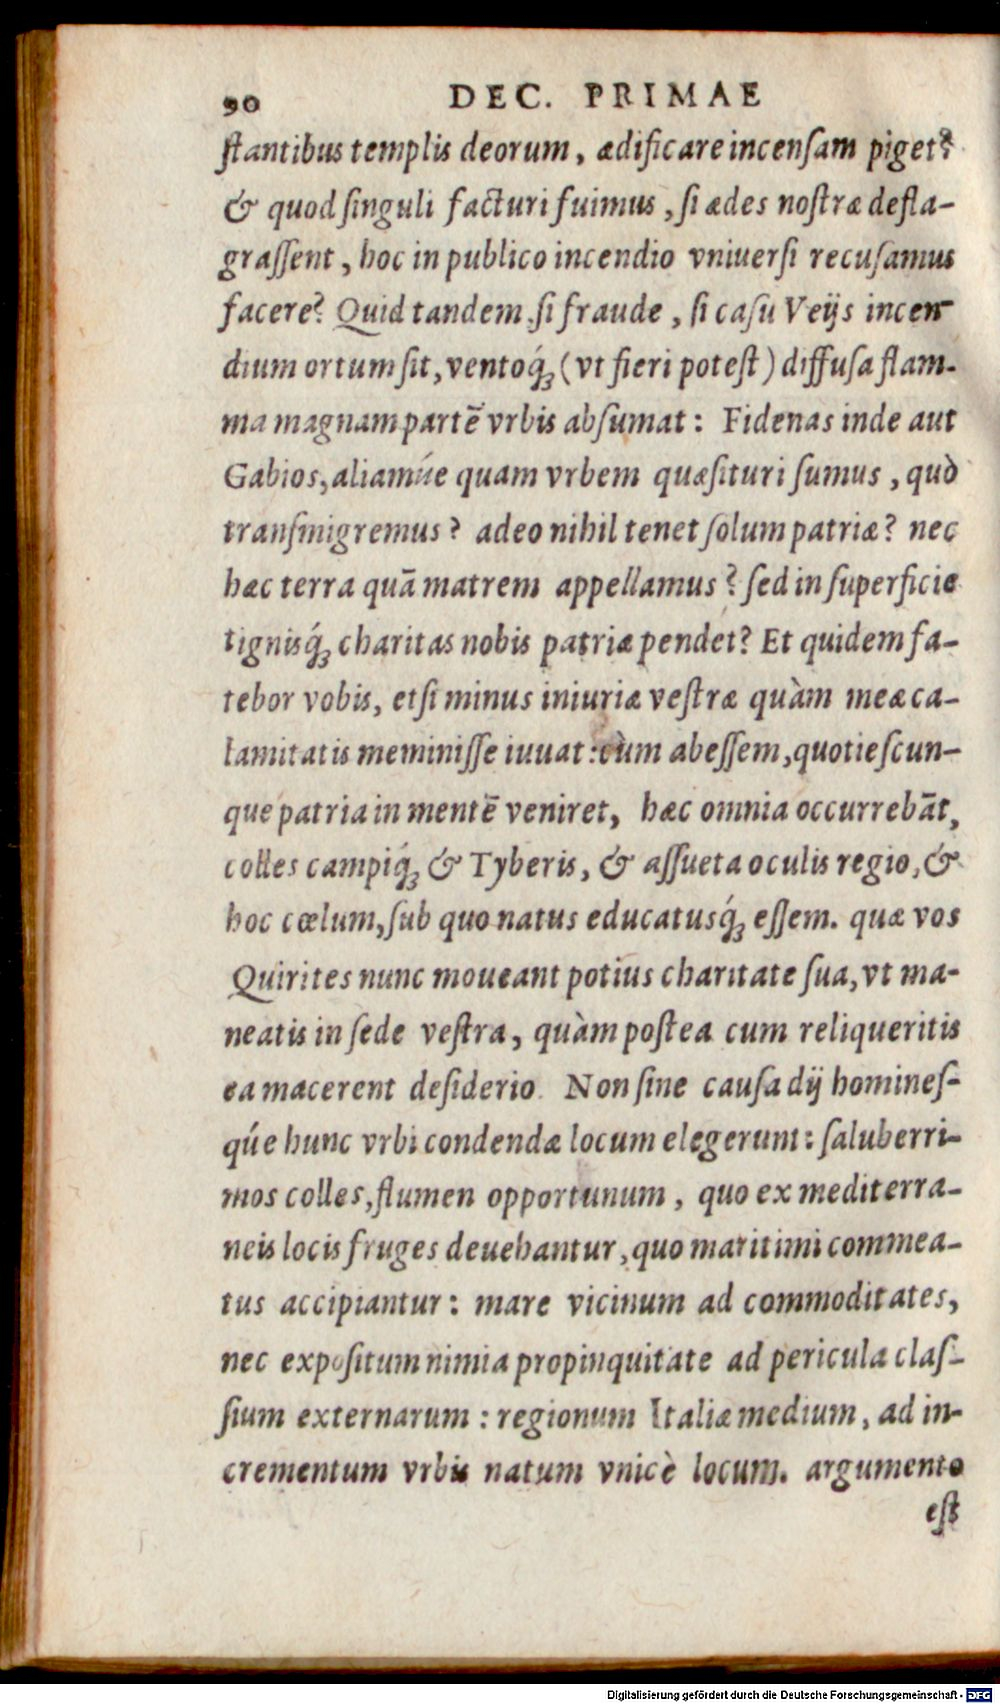 90 DEC. PRIMAE
ſtantibus templis deorum, ædificare incenſam piget?
& quod ſinguli facturi fuimus, ſi ædes noſtræ defla-
graſſent, hoc in publico incendio vniuerſi recuſamus
facere? Quid tandem ſi fraude, ſi caſu Veijs incen-
dium ortum ſit, ventoq́ꝫ (vt fieri poteſt) diffuſa flam-
ma magnam partē vrbis abſumat: Fidenas inde aut
Gabios, aliamúe quam vrbem quæſituri ſumus, quò
tranſmigremus? adeo nihil tenet ſolum patriæ? nec
hæc terra quā matrem appellamus? ſed in ſuperficie
tigniſq́ꝫ charitas nobis patriæ pendet? Et quidem fa-
tebor vobis, etſi minus iniuriæ veſtræ quàm meæ ca-
lamitatis meminiſſe iuuat: cùm abeſſem, quotieſcun-
que patria in mentē veniret, hæc omnia occurrebāt,
colles campiq́ꝫ & Tyberis, & aſſueta oculis regio, &
hoc cœlum, ſub quo natus educatusq́ꝫ eſſem. quæ vos
Quirites nunc moueant potius charitate ſua, vt ma-
neatis in ſede veſtra, quàm poſtea cum reliqueritis
ea macerent deſiderio. Non ſine cauſa dij homineſ-
qúe hunc vrbi condendæ locum elegerunt: ſaluberri-
mos colles, flumen opportunum, quo ex mediterra-
neis locis fruges deuehantur, quo maritimi commea-
tus accipiantur: mare vicinum ad commoditates,
nec expoſitum nimia propinquitate ad pericula claſ-
ſium externarum: regionum Italiæ medium, ad in-
crementum vrbis natum vnicè locum. argumento
eſt
Digitalisierung gefördert durch die Deutsche Forschungsgemeinschaft - DFG